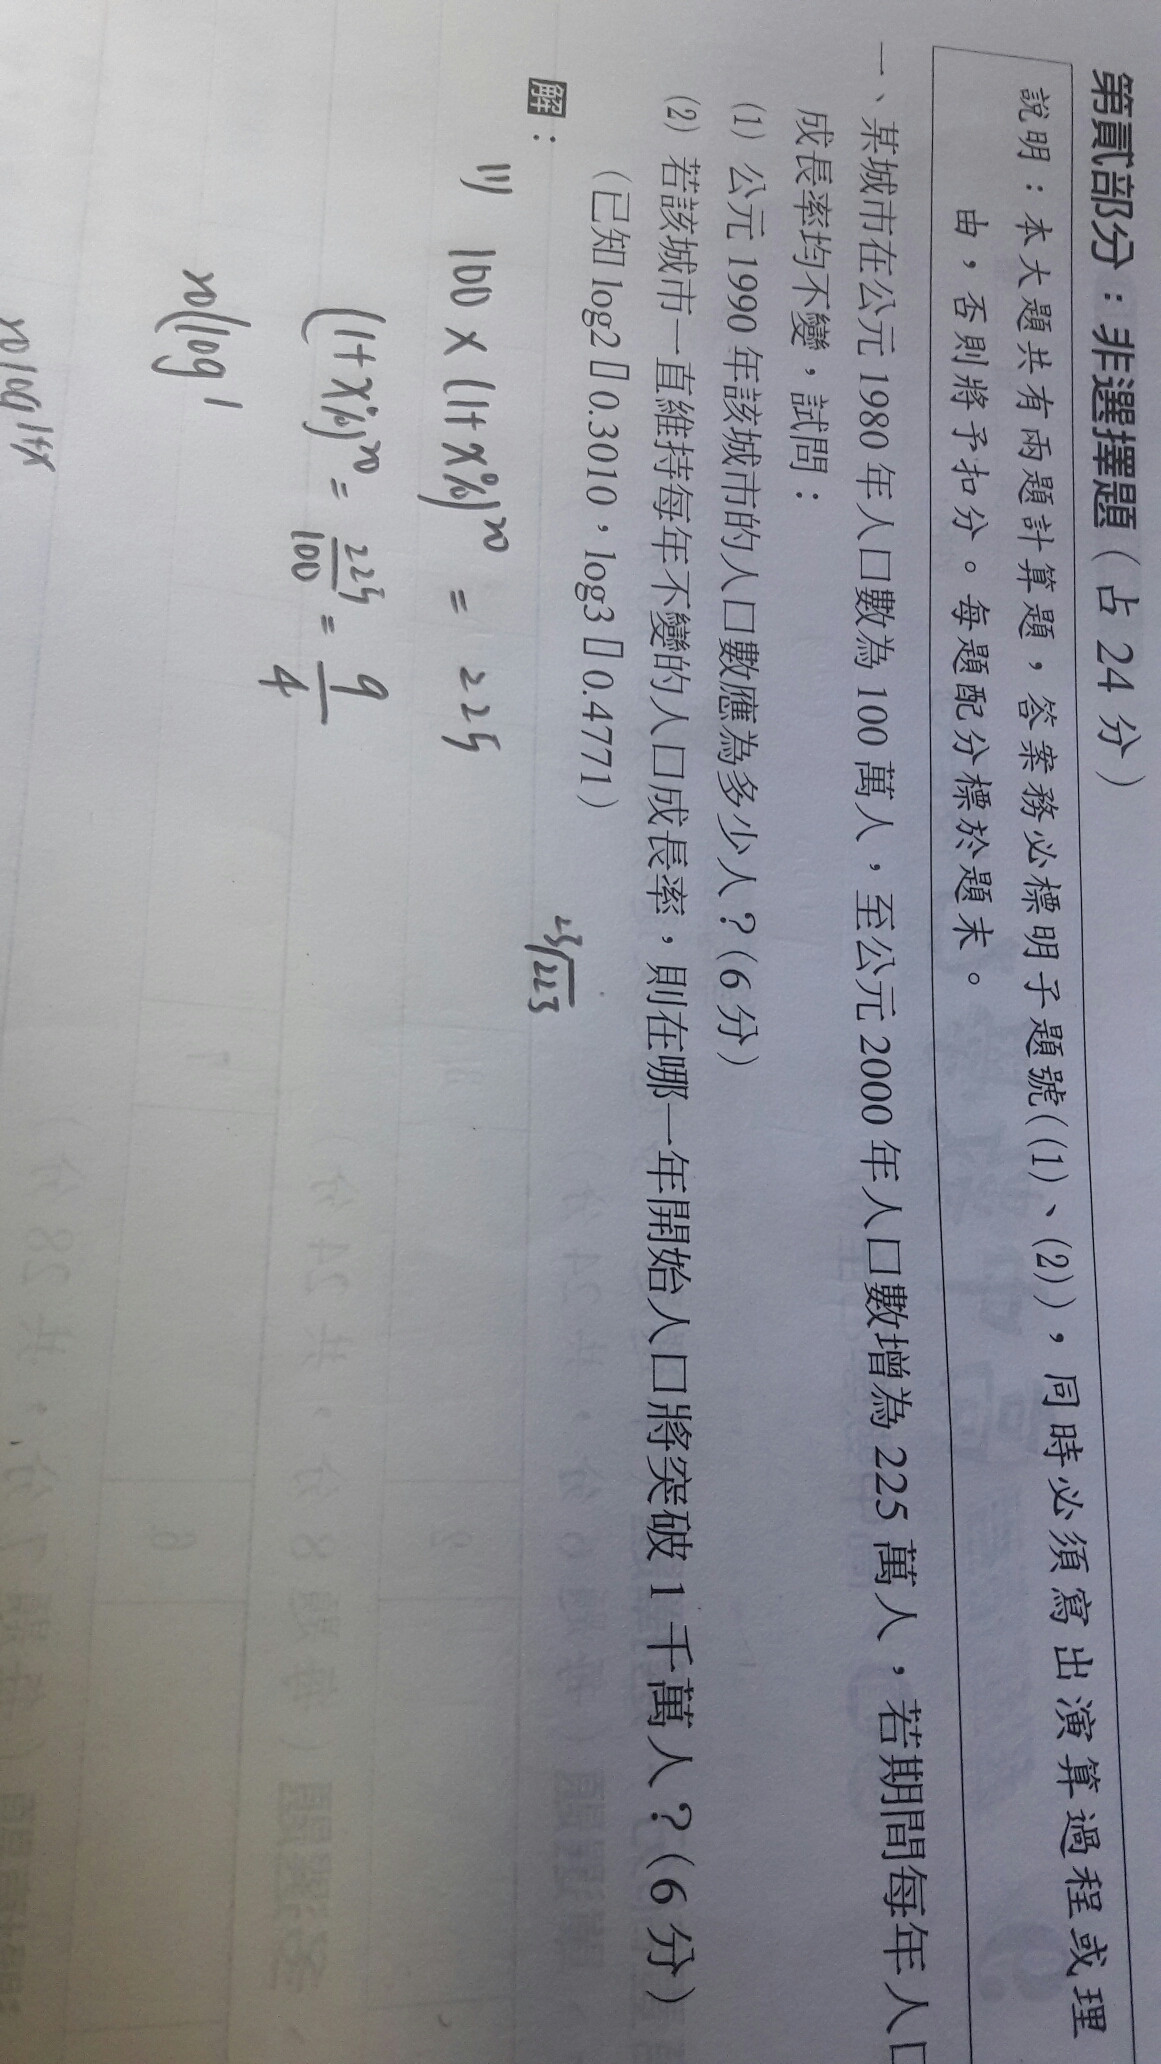 第貳部分：非選擇題（占 24 分）
說明：本大題共有兩題計算題，答案務必標明子題號((1)、(2))，同時必須寫出演算過程或理
由，否則將予扣分。每題配分標於題末。
一、某城市在公元 1980 年人口數為 100 萬人，至公元 2000 年人口數增為 225 萬人，若期間每年人口
成長率均不變，試問：
(1) 公元 1990 年該城市的人口數應為多少人？(6 分)
(2) 若該城市一直維持每年不變的人口成長率，則在哪一年開始人口將突破 1 千萬人？(6 分)
（已知 log2▯0.3010，log3▯0.4771）
解：
(1) 100 × (1+x%)^20 = 225
(1+x%)^20 = 225/100 = 9/4
20(log 1
20 log 1+x